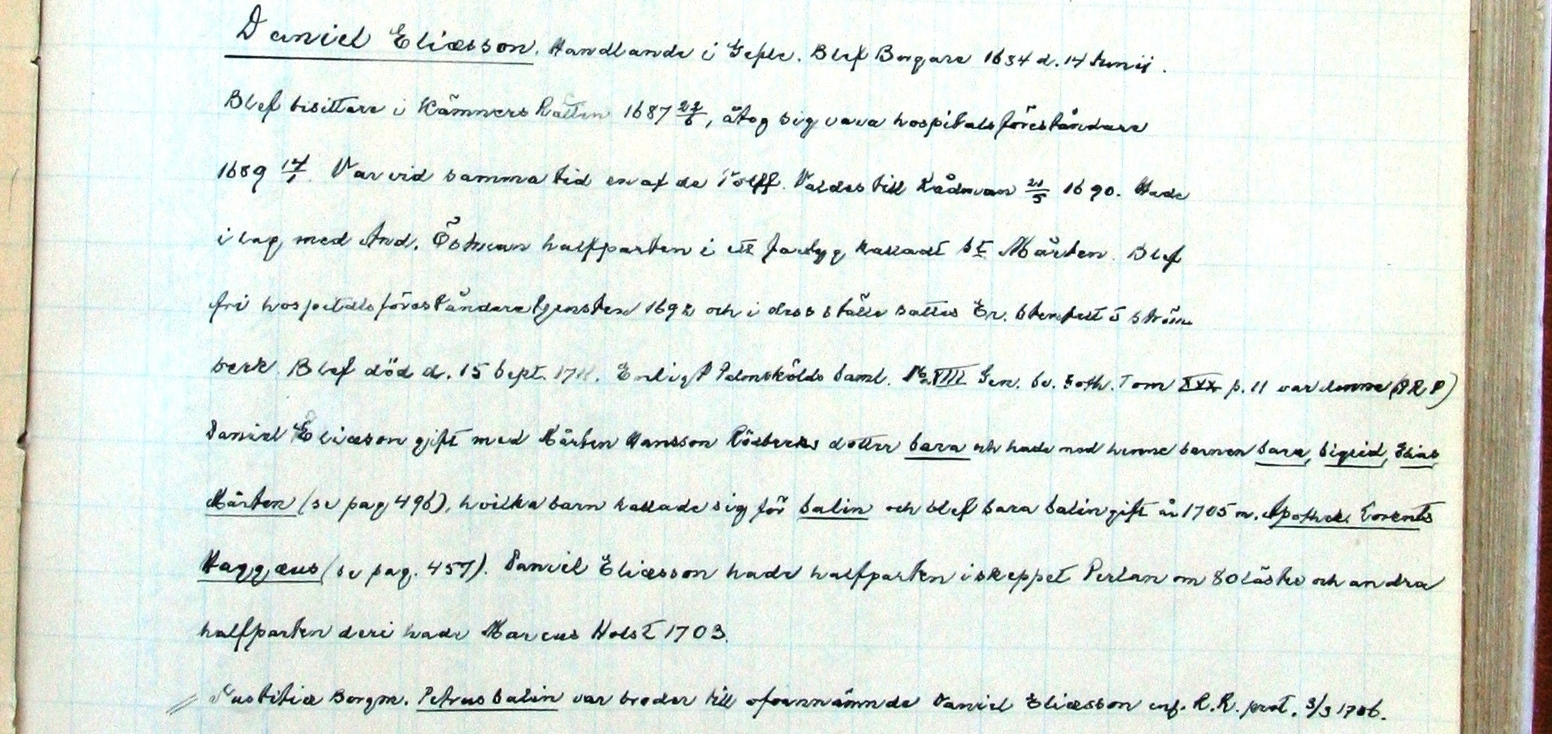 Daniel Eliæsson. Handlande i Gefle. Blef Borgare 1684 d. 14 Junij.
Blef bisittare i Kämners Rätten 1687 22/6, åtog sig vara hospitalsföreståndare
1689 14/1. Var vid samma tid en af de Tolff. Valdes till Rådman 21/5 1690. Hade
i lag med And. Östman halfparten i ett fartyg kalladt St Mårten. Blef
fri hospitalsföreståndaretjensten 1692 och i dess ställe sattes Er. Stenfelt å Ström
berk. Blef död d. 15 Sept. 1711. Enligt Palmskölds Saml. No XVIII Gen. Sv. Goth. Tom XXX p. 11 var denne
Daniel Eliæson gift med Mårten Hansson Rödbecks dotter Sara och hade med henne barnen Sara, Sigrid, Elias,
Mårten (se pag 496), hvilka barn kallade sig för Salin och blef Sara Salin gift år 1705 m. Apothek. Lorents
Haggæus (se pag. 457). Daniel Eliæsson hade halfparten i skeppet Perlan om 80 läster och andra
halfparten deri hade Marcus Holst 1703.
Justitiæ Borgm. Petrus Salin var broder till ofvannämnde Daniel Eliæsson enl. R.R. prot. 3/3 1706.